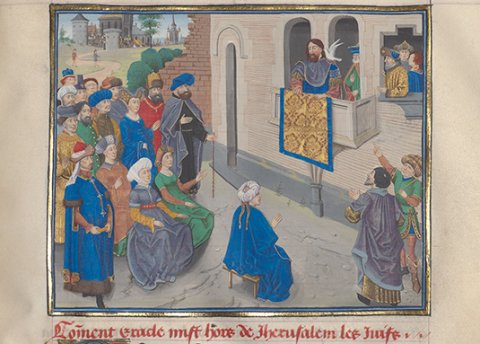 Cõment eracle mist hors de Jherusalem les Juifs